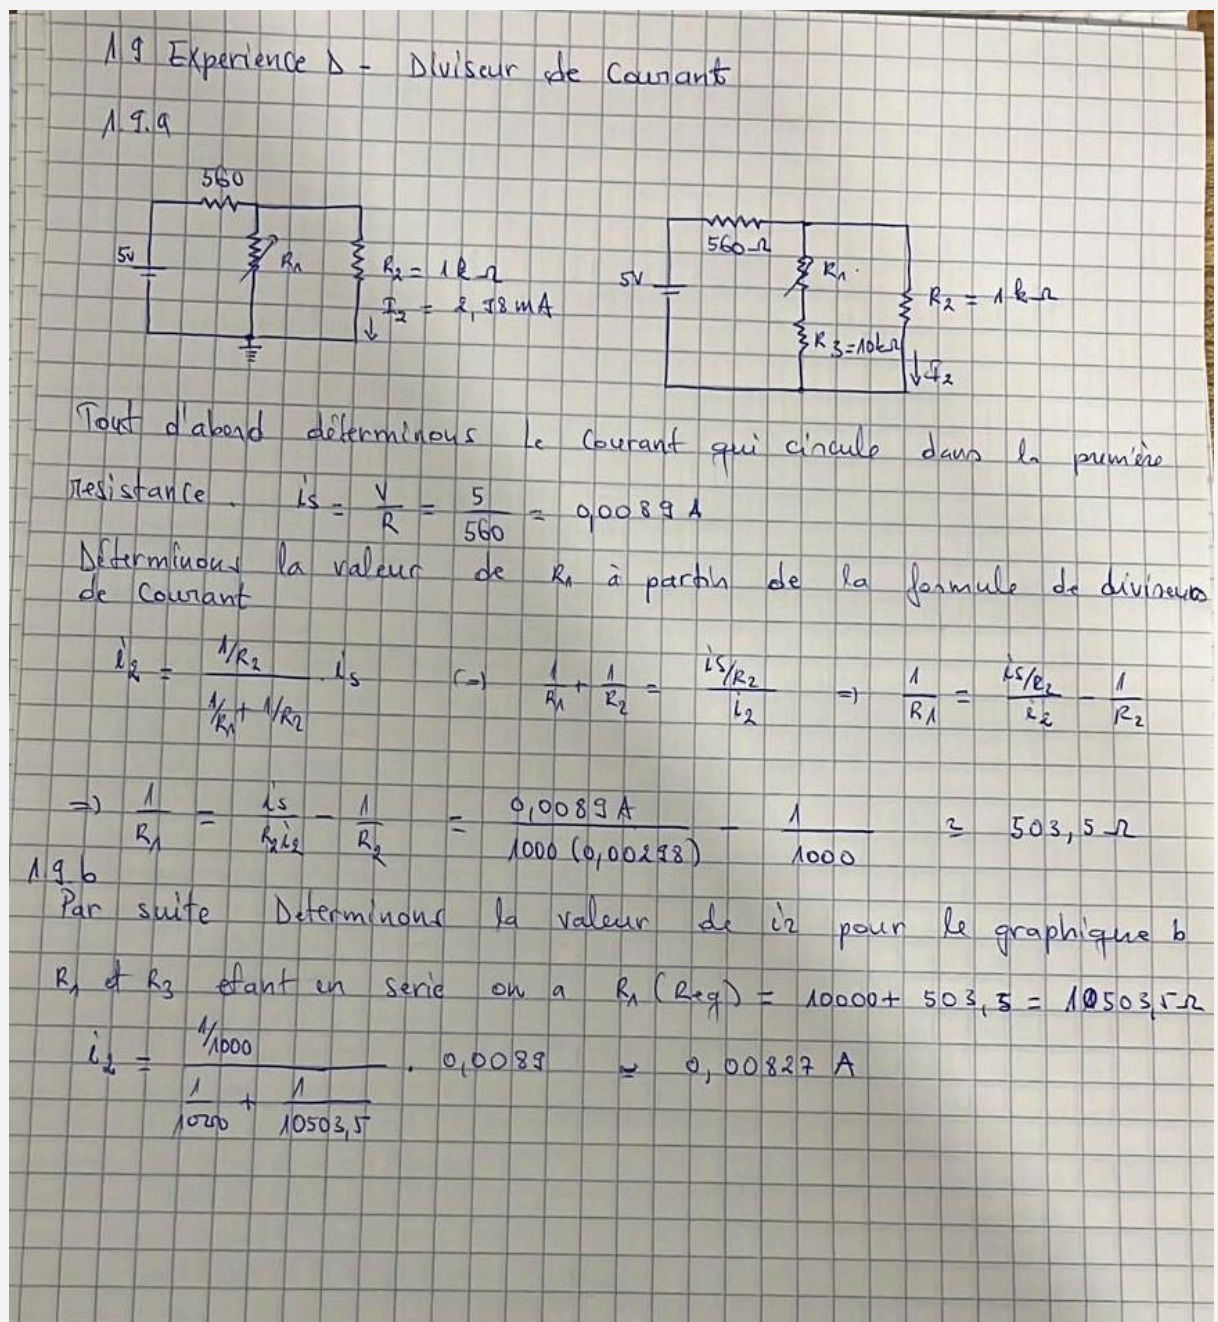 19 Experience D - Diviseur de Courant
19.a
560
5v
R1
R2 = 1kΩ
I2 = 2,98mA
560Ω
5V
R1
R2 = 1kΩ
R3=10kΩ
I2
Tout d'abord déterminous le Courant qui circule dans la première
resistance. is = V/R = 5/560 = 0,0089 A
Déterminous la valeur de R1 à partir de la formule de diviseur
de Courant
i2 = (1/R2)/(1/R1 + 1/R2) . is (=) 1/R1 + 1/R2 = (is/R2)/i2 =) 1/R1 = (is/R2)/i2 - 1/R2
=) 1/R1 = is/R2i2 - 1/R2 = 0,0089A/1000(0,00298) - 1/1000 ≃ 503,5Ω
19.b
Par suite Determinons la valeur de i2 pour le graphique b
R1 et R3 etant en serie on a R1 (Req) = 10000+ 503,5 = 10503,5Ω
i2 = (1/1000)/(1/1000 + 1/10503,5) . 0,0089 ≃ 0,00827 A